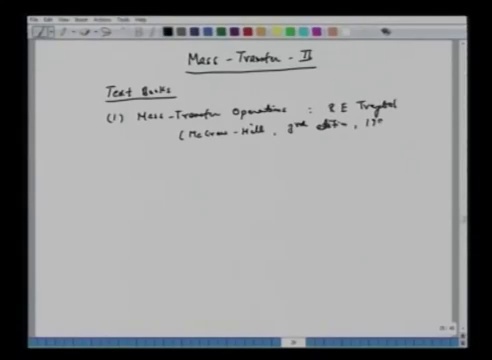 File Edit View Insert Actions Tools Help
Mass-Transfer-II
Text Books
(1) Mass-Transfer Operations : R E Treybal
(McGraw-Hill, 3rd